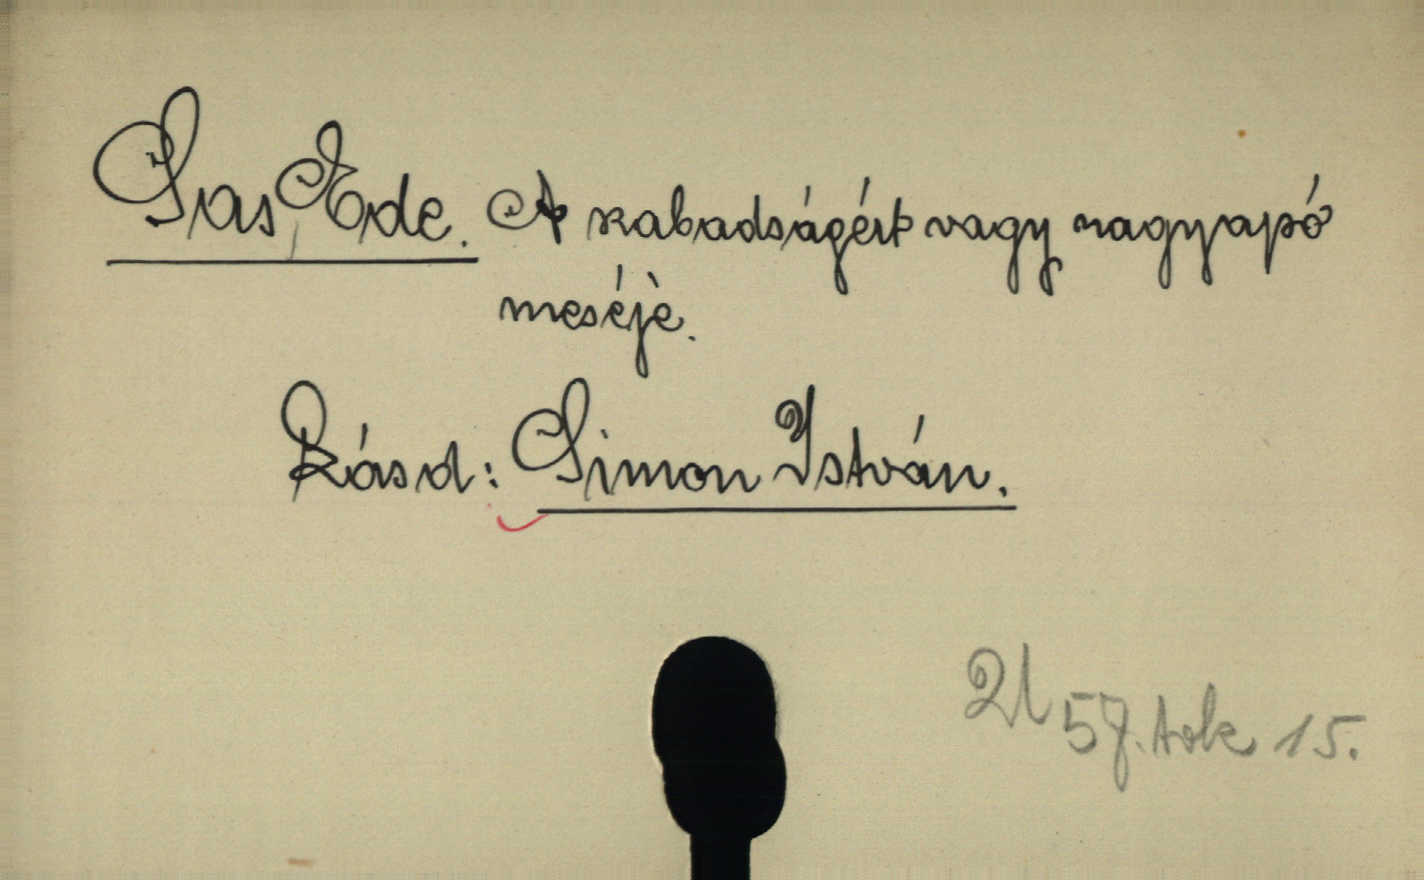 Sas, Ede. A szabadságért vagy nagyapó
meséje.
Lásd: Simon István.
57. tok 15.